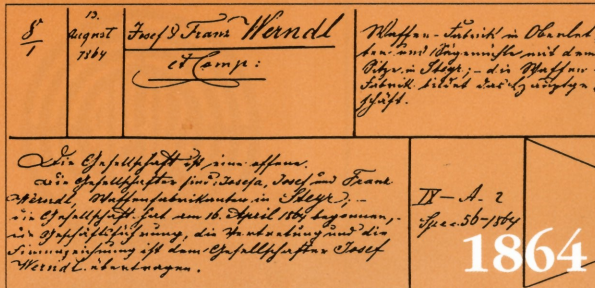 §
1
13.
August
1864
Josef & Franz Werndl
et Comp:
Waffen-Fabrik in Oberlet
ten und Sägemühle mit dem
Sitze in Steyr; – die Waffen-
Fabrik bildet das Hauptge
schäft.
Die Gesellschaft ist eine offene.
Die Gesellschafter sind: Josefa, Josef und Franz
Werndl, Waffenfabrikanten in Steyr; –
die Gesellschaft hat am 16. April 1864 begonnen,
die Geschäftsführung, die Vertretung und die
Firmazeichnung ist dem Gesellschafter Josef
Werndl übertragen.
IX – A. 2
56-1864
1864